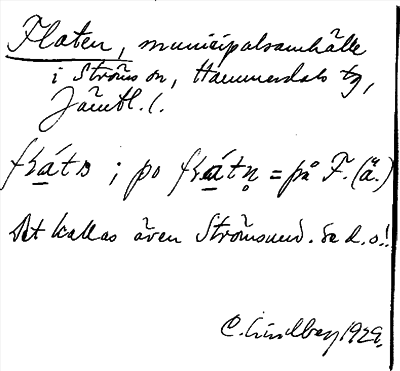 Flaten, municipalsamhälle
i Ströms sn, Hammerdals tg,
Jämtl. l.
; po = på F. (ä.)
Det kallas även Strömsund. Se d. o.!
C. Lindberg 1929.